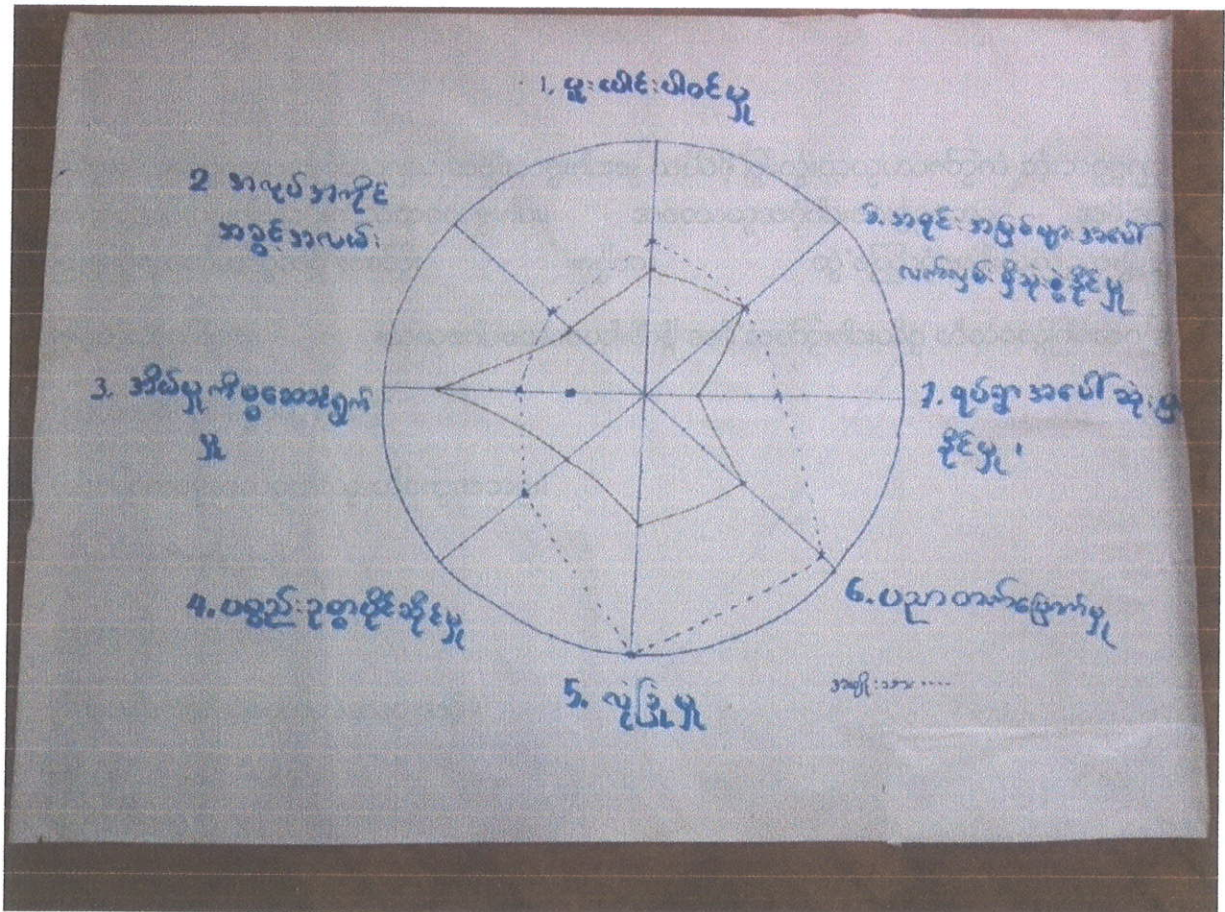 1. ပူးပေါင်းပါဝင်မှု
2 အလုပ်အကိုင်
အခွင့်အလမ်း
3. အိမ်မှုကိစ္စဆောင်ရွက်
မှု
4. ပစ္စည်းဥစ္စာပိုင်ဆိုင်မှု
5. လုံခြုံမှု
6. ပညာတတ်မြောက်မှု
7. ရပ်ရွာအပေါ်
နိုင်မှု
8. အရင်းအမြစ်များအပေါ်
လက်လှမ်းမှီသုံးစွဲနိုင်မှု
အမျိုးသား ....